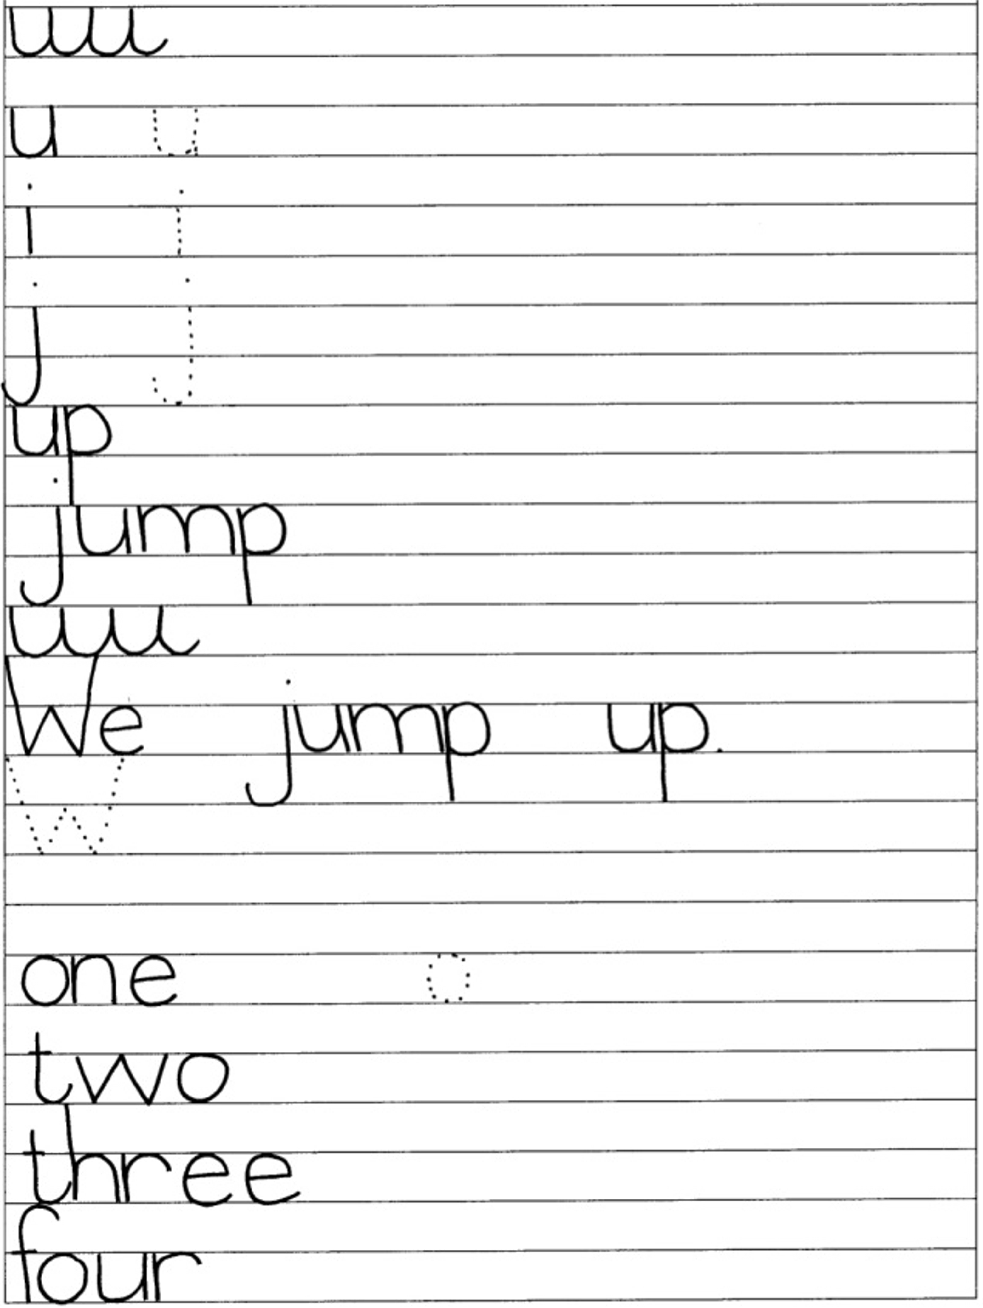 uuu
u u
i i
j j
up
jump
uuu
We jump up.
W
one o
two
three
four